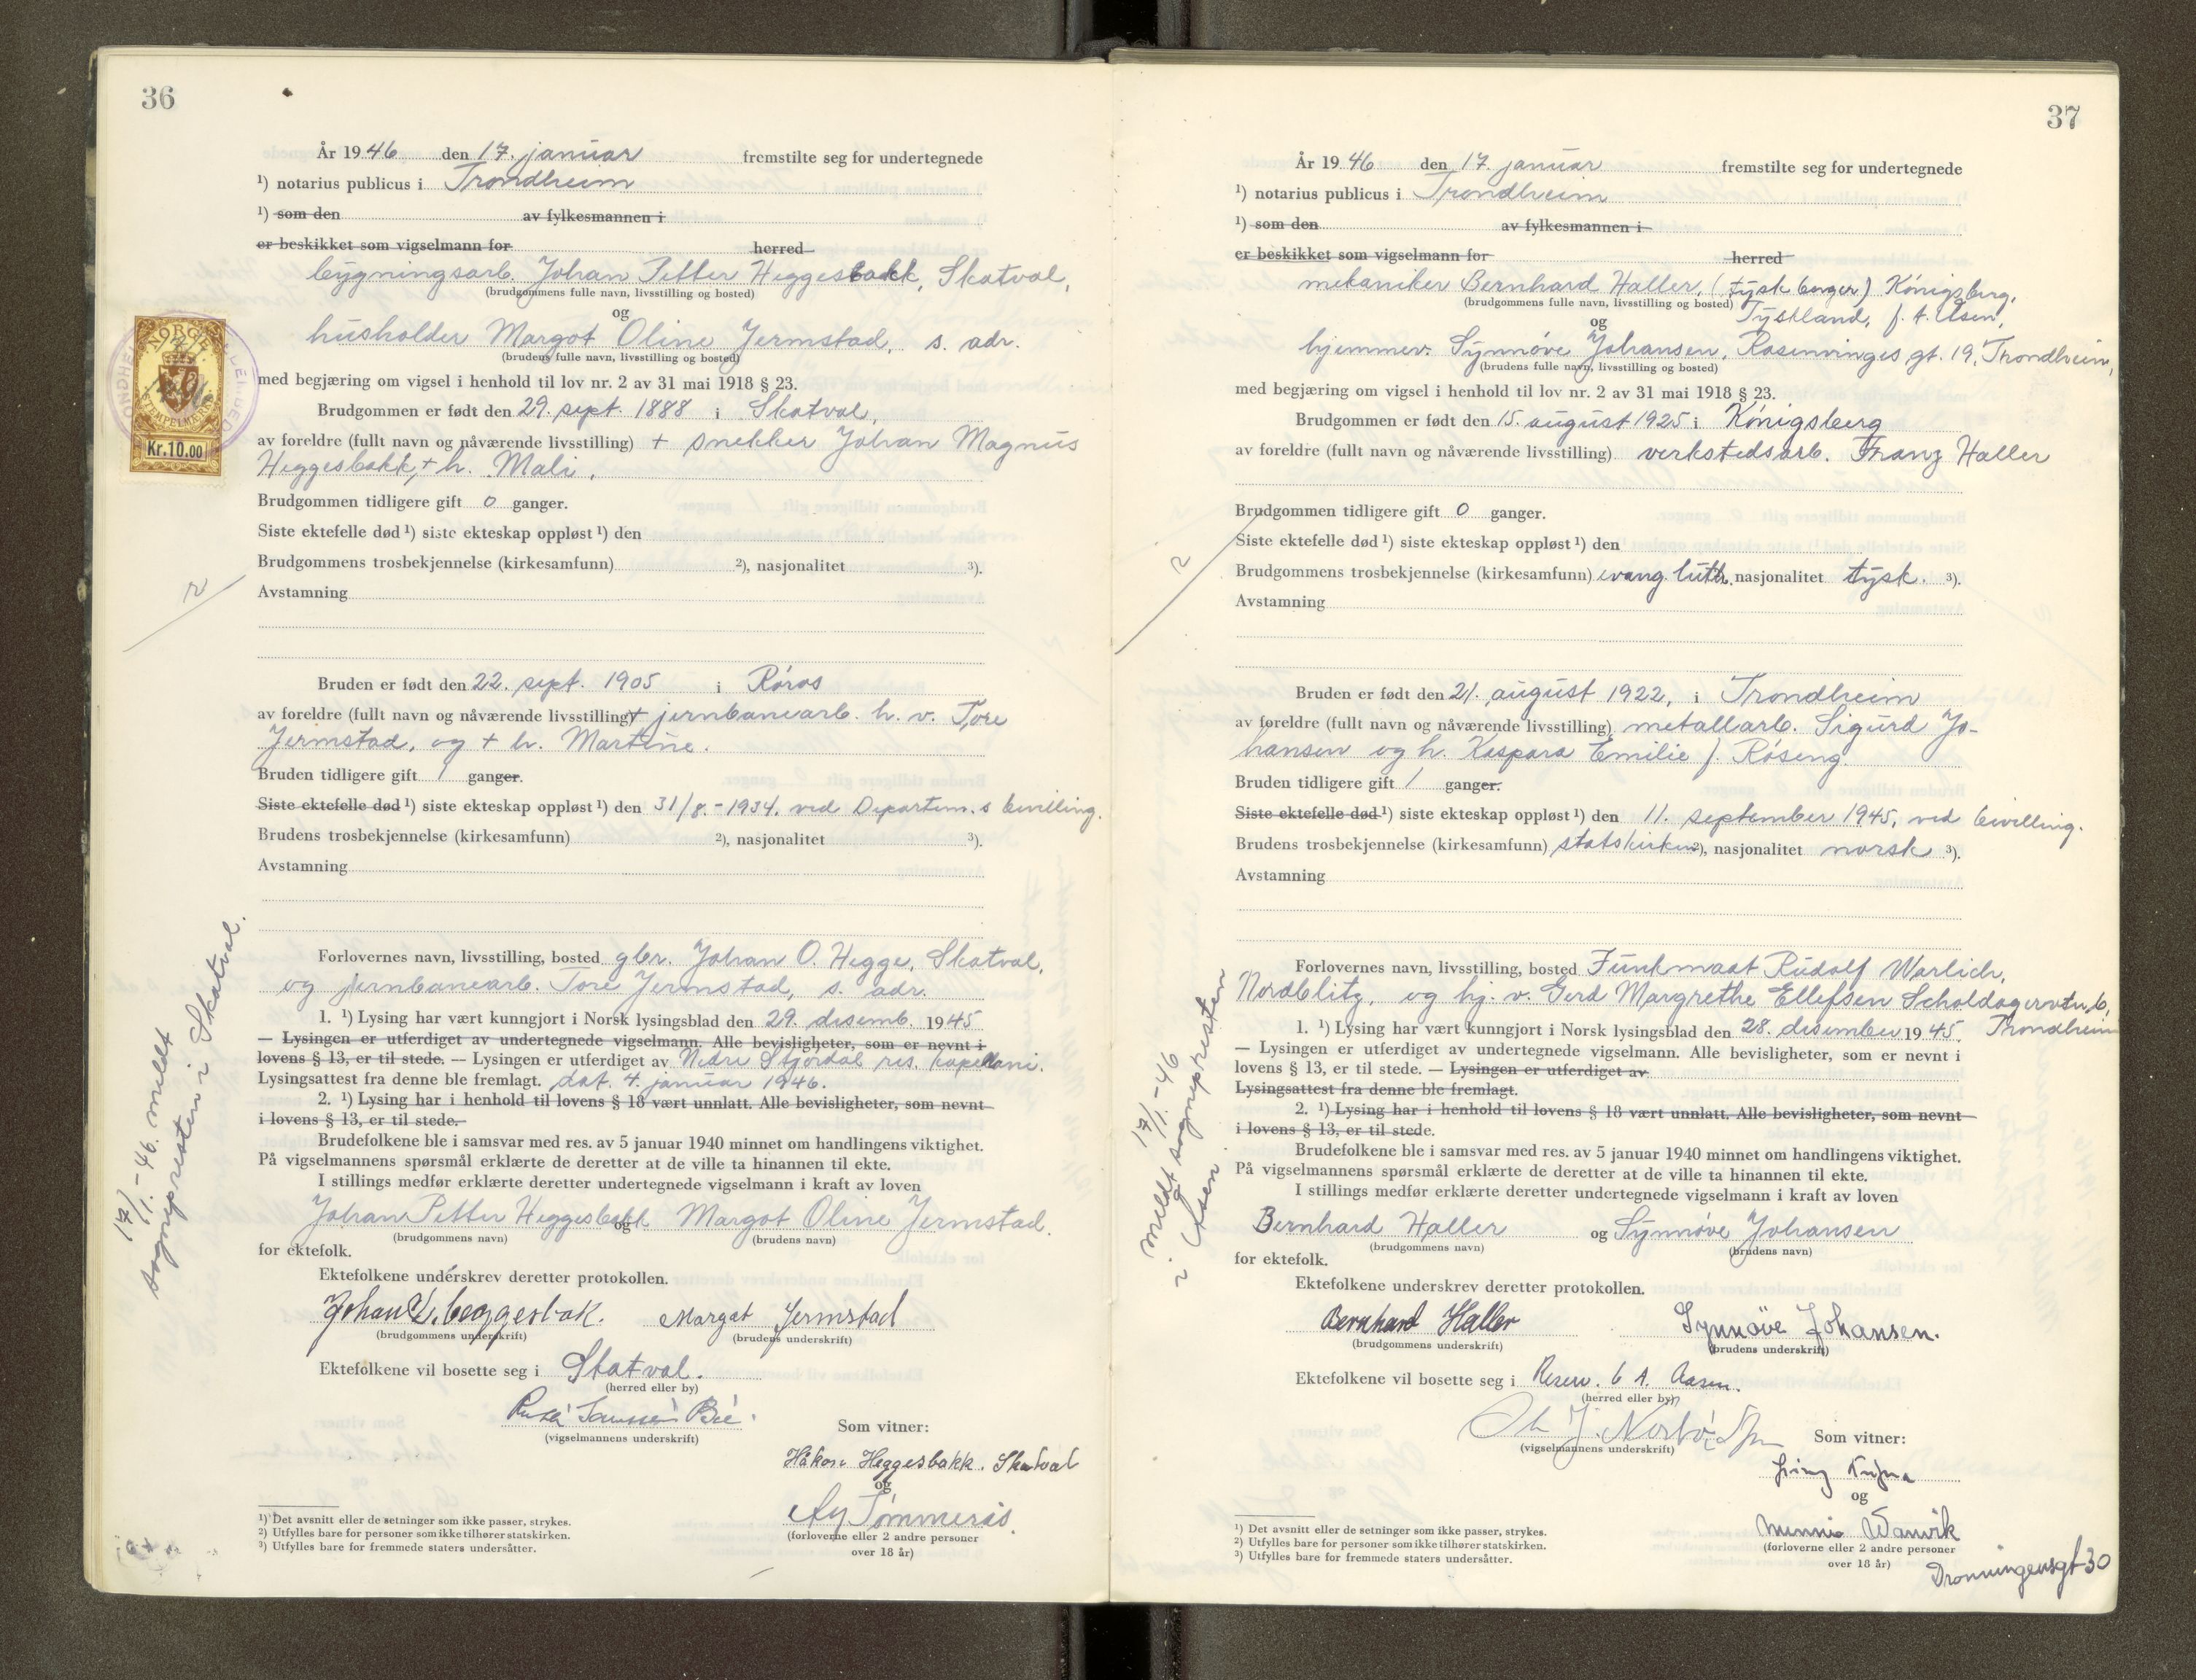 36
År 1946 den 17. januar fremstilte seg for undertegnede
¹) notarius publicus i Trondheim
¹) som den av fylkesmannen i
er beskikket som vigselmann for herred
bygningsarb. Johan Petter Heggesbakk, Skatval,
(brudgommens fulle navn, livsstilling og bosted)
og
husholder Margot Oline Jermstad, s. adr.
(brudens fulle navn, livsstilling og bosted)
NORGE
STEMPELMERKE
Kr.10.00
med begjæring om vigsel i henhold til lov nr. 2 av 31 mai 1918 § 23.
Brudgommen er født den 29. sept. 1888 i Skatval,
av foreldre (fullt navn og nåværende livsstilling) + snekker Johan Magnus
Heggesbakk, + h. Mali,
Brudgommen tidligere gift 0 ganger.
Siste ektefelle død ¹) siste ekteskap oppløst ¹) den
Brudgommens trosbekjennelse (kirkesamfunn) ²), nasjonalitet ³).
Avstamning
Bruden er født den 22. sept. 1905 i Røros
av foreldre (fullt navn og nåværende livsstilling) + jernbanearb. h. v. Tore
Jermstad, og + h. Martine.
Bruden tidligere gift 1 ganger.
Siste ektefelle død ¹) siste ekteskap oppløst ¹) den 31/8.-1934. ved Departem.s bevilling.
Brudens trosbekjennelse (kirkesamfunn) ²), nasjonalitet ³).
Avstamning
Forlovernes navn, livsstilling, bosted gbr. Johan O. Hegge, Skatval,
og jernbanearb. Tore Jermstad, s. adr.
1. ¹) Lysing har vært kunngjort i Norsk lysingsblad den 29. desemb. 1945
— Lysingen er utferdiget av undertegnede vigselmann. Alle bevisligheter, som er nevnt i
lovens § 13, er til stede. — Lysingen er utferdiget av Nedre Stjørdal res. kapellani.
Lysingsattest fra denne ble fremlagt. dat. 4. januar 1946.
2. ¹) Lysing har i henhold til lovens § 18 vært unnlatt. Alle bevisligheter, som nevnt
i lovens § 13, er til stede.
Brudefolkene ble i samsvar med res. av 5 januar 1940 minnet om handlingens viktighet.
På vigselmannens spørsmål erklærte de deretter at de ville ta hinannen til ekte.
I stillings medfør erklærte deretter undertegnede vigselmann i kraft av loven
Johan Petter Heggesbakk og Margot Oline Jermstad.
(brudgommens navn) (brudens navn)
for ektefolk.
Ektefolkene underskrev deretter protokollen.
Margot Jermstad
(brudgommens underskrift) (brudens underskrift)
Ektefolkene vil bosette seg i Skatval.
(herred eller by)
(vigselmannens underskrift)
Som vitner:
Håkon Heggesbakk. Skatval
og
Tømmerås.
(forloverne eller 2 andre personer
over 18 år)
¹) Det avsnitt eller de setninger som ikke passer, strykes.
²) Utfylles bare for personer som ikke tilhører statskirken.
³) Utfylles bare for fremmede staters undersåtter.
17/1.-46. meldt
sognepresten i Skatval.
37
År 1946 den 17. januar fremstilte seg for undertegnede
¹) notarius publicus i Trondheim
¹) som den av fylkesmannen i
er beskikket som vigselmann for herred
mekaniker Bernhard Haller, (tysk borger) Königsberg,
(brudgommens fulle navn, livsstilling og bosted) Tyskland, f. t. Åsen,
og
hjemmev. Synnøve Johansen, Rosenvinges gt. 19, Trondheim,
(brudens fulle navn, livsstilling og bosted)
med begjæring om vigsel i henhold til lov nr. 2 av 31 mai 1918 § 23.
Brudgommen er født den 15. august 1925 i Königsberg
av foreldre (fullt navn og nåværende livsstilling) verkstedsarb. Franz Haller
Brudgommen tidligere gift 0 ganger.
Siste ektefelle død ¹) siste ekteskap oppløst ¹) den
Brudgommens trosbekjennelse (kirkesamfunn) evang. luth. nasjonalitet tysk. ³).
Avstamning
Bruden er født den 21. august 1922, i Trondheim
av foreldre (fullt navn og nåværende livsstilling) metallarb. Sigurd Jo-
hansen og h. Kaspara Emilie f. Røseng.
Bruden tidligere gift 1 ganger.
Siste ektefelle død ¹) siste ekteskap oppløst ¹) den 11. september 1945, ved bevilling.
Brudens trosbekjennelse (kirkesamfunn) statskirken ²), nasjonalitet norsk ³).
Avstamning
Forlovernes navn, livsstilling, bosted Funkmaat Rudolf Warlich,
Nordblitz, og hj. v. Gerd Margrethe Ellefsen 6,
Trondheim
1. ¹) Lysing har vært kunngjort i Norsk lysingsblad den 28. desember 1945.
— Lysingen er utferdiget av undertegnede vigselmann. Alle bevisligheter, som er nevnt i
lovens § 13, er til stede. — Lysingen er utferdiget av
Lysingsattest fra denne ble fremlagt.
2. ¹) Lysing har i henhold til lovens § 18 vært unnlatt. Alle bevisligheter, som nevnt
i lovens § 13, er til stede.
Brudefolkene ble i samsvar med res. av 5 januar 1940 minnet om handlingens viktighet.
På vigselmannens spørsmål erklærte de deretter at de ville ta hinannen til ekte.
I stillings medfør erklærte deretter undertegnede vigselmann i kraft av loven
Bernhard Haller og Synnøve Johansen
(brudgommens navn) (brudens navn)
for ektefolk.
Ektefolkene underskrev deretter protokollen.
Bernhard Haller Synnöve Johansen.
(brudgommens underskrift) (brudens underskrift)
Ektefolkene vil bosette seg i Reserv. 6 A. Aasen.
(herred eller by)
(vigselmannens underskrift)
Som vitner:
og
Wanvik
(forloverne eller 2 andre personer
over 18 år)
Dronningensgt 30
¹) Det avsnitt eller de setninger som ikke passer, strykes.
²) Utfylles bare for personer som ikke tilhører statskirken.
³) Utfylles bare for fremmede staters undersåtter.
17/1.-46
meldt sognepresten
i Åsen.